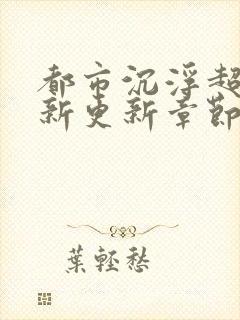 都市沉浮超
新更新章節
葉輕愁